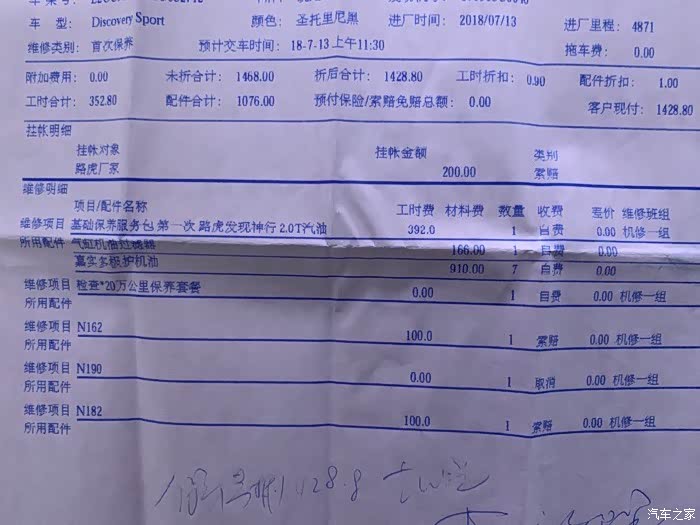 车型: Discovery Sport 颜色: 圣托里尼黑 进厂时间: 2018/07/13 进厂里程: 4871
维修类别: 首次保养 预计交车时间: 18-7-13 上午11:30 拖车费: 0.00
附加费用: 0.00 未折合计: 1468.00 折后合计: 1428.80 工时折扣: 0.90 配件折扣: 1.00
工时合计: 352.80 配件合计: 1076.00 预付保险/索赔免赔总额: 0.00 客户现付: 1428.80
挂帐明细
挂帐对象 挂帐金额 类别
路虎厂家 200.00 索赔
维修明细
项目/配件名称 工时费 材料费 数量 收费 差价 维修班组
维修项目 基础保养服务包 第一次 路虎发现神行 2.0T汽油 392.0 1 自费 0.00 机修一组
所用配件 气缸机油过滤器 166.00 1 自费 0.00
嘉实多极护机油 910.00 7 自费 0.00
维修项目 检查*20万公里保养套餐 0.00 1 自费 0.00 机修一组
所用配件
维修项目 N162 100.0 1 索赔 0.00 机修一组
所用配件
维修项目 N190 0.00 1 取消 0.00 机修一组
所用配件
维修项目 N182 100.0 1 索赔 0.00 机修一组
所用配件
1428.8
汽车之家